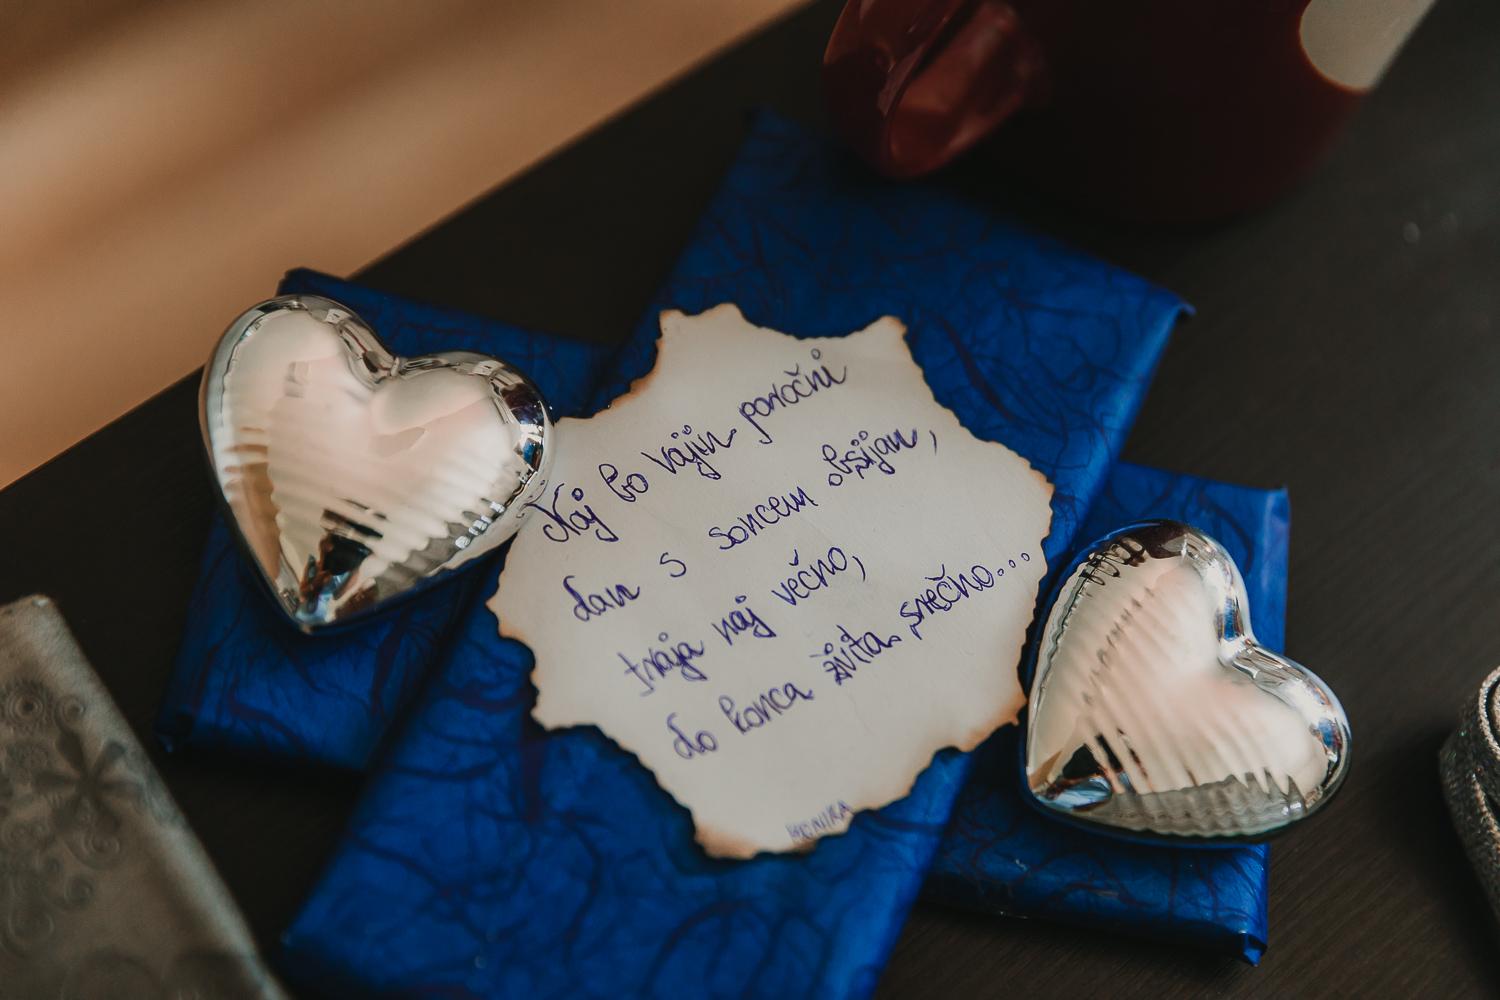 Naj bo vajin poročni
dan s soncem obsijan,
traja naj večno,
do konca življa srečno...